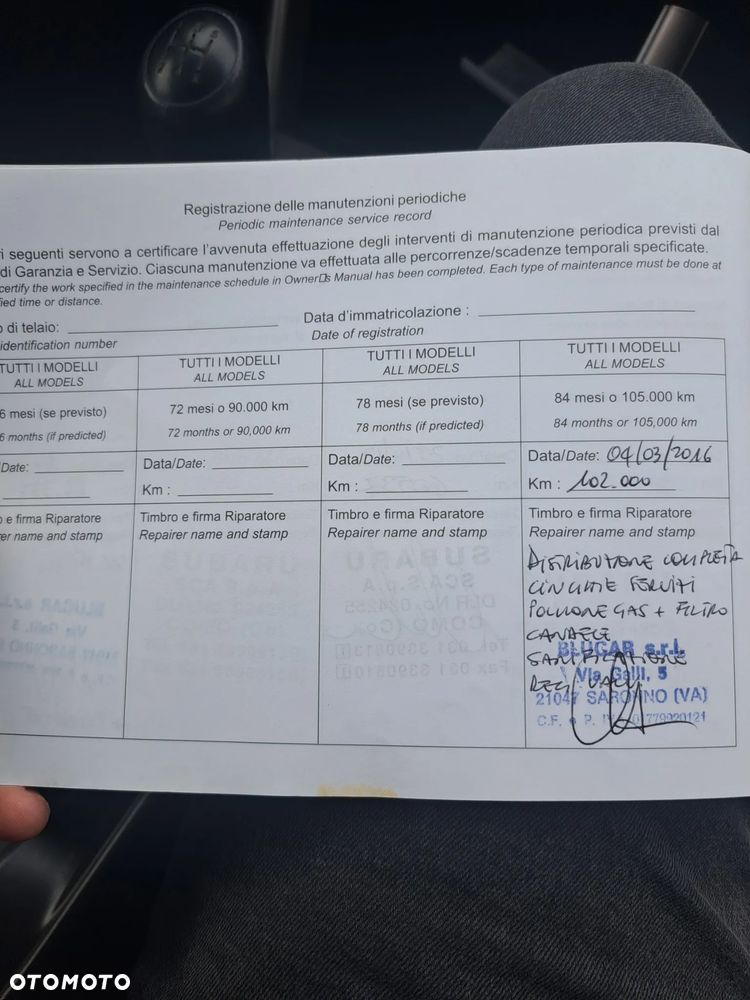 Registrazione delle manutenzioni periodiche
Periodic maintenance service record
i seguenti servono a certificare l'avvenuta effettuazione degli interventi di manutenzione periodica previsti dal
di Garanzia e Servizio. Ciascuna manutenzione va effettuata alle percorrenze/scadenze temporali specificate.
certify the work specified in the maintenance schedule in Owner□s Manual has been completed. Each type of maintenance must be done at
ied time or distance.
o di telaio:
Data d'immatricolazione :
identification number
Date of registration
TUTTI I MODELLI
ALL MODELS
6 mesi (se previsto)
6 months (if predicted)
/Date:
o e firma Riparatore
er name and stamp
TUTTI I MODELLI
ALL MODELS
72 mesi o 90.000 km
72 months or 90,000 km
Data/Date:
Km :
Timbro e firma Riparatore
Repairer name and stamp
TUTTI I MODELLI
ALL MODELS
78 mesi (se previsto)
78 months (if predicted)
Data/Date:
Km :
Timbro e firma Riparatore
Repairer name and stamp
TUTTI I MODELLI
ALL MODELS
84 mesi o 105.000 km
84 months or 105,000 km
Data/Date: 04/03/2016
Km : 102.000
Timbro e firma Riparatore
Repairer name and stamp
DISTRIBUZIONE COMPLETA
CINGHIE SERVIZI
GAS + FILTRO
CANDELE
SANIFICAZIONE
BLUCAR s.r.l.
Via Galli, 5
21047 SARONNO (VA)
C.F. e P.
OTOMOTO